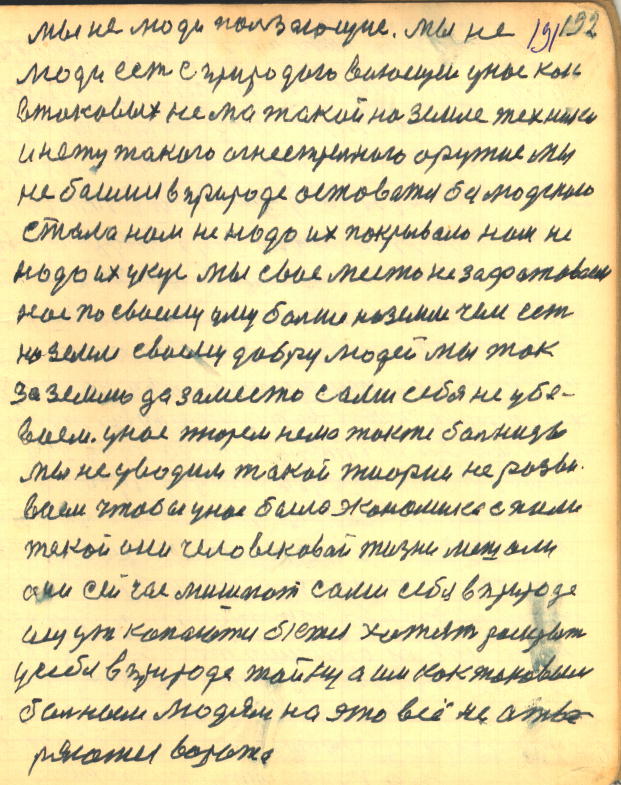 мы не люди ползающие. мы не 191 192
люди ест с природого вающеи унас как
втаковых не ма такой на земле техники
и нету такого огнестрелного оружие мы
не башии в природе оставатся бы людскаю
стала нам не надо их покривало нам не
надо их укус мы свое место не зафатовали
нас по своему уму болше на земли чем ест
на земли своему добру людей мы так
за землю да за место сами себя не убе-
ваем. унас тюрем нема также болницы
мы не уводим такой тиории не розви.
ваем чтобы унас была экономика с ними
такой они человековай жизни мешали
они сейчас мишают сами себя в природе
им ут копаютя бются хотят раскрыт
у себя в природе тайну а им как таковым
болным людям на это всё не атва-
ряются ворота